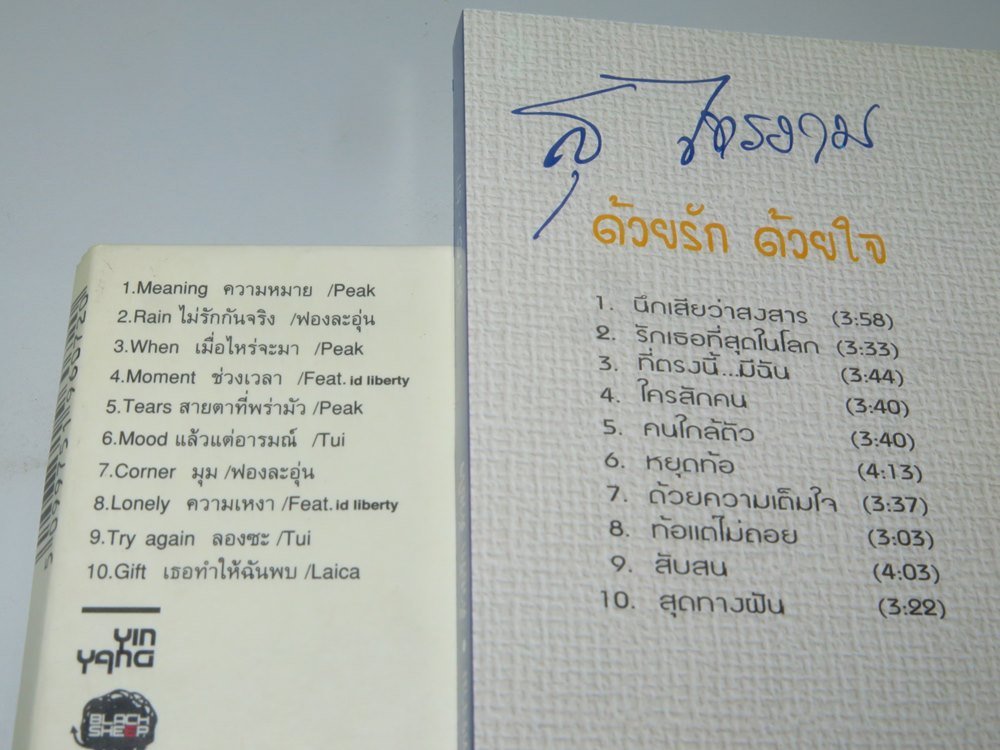 1.Meaning ความหมาย /Peak
2.Rain ไม่รักกันจริง /ฟองละอุ่น
3.When เมื่อไหร่จะมา /Peak
4.Moment ช่วงเวลา /Feat. id liberty
5.Tears สายตาที่พร่ามัว /Peak
6.Mood แล้วแต่อารมณ์ /Tui
7.Corner มุม /ฟองละอุ่น
8.Lonely ความเหงา /Feat. id liberty
9.Try again ลองซะ /Tui
10.Gift เธอทำให้ฉันพบ /Laica
yin
yang
BLACK
SHEEP
ด้วยรัก ด้วยใจ
1. นึกเสียว่าสงสาร (3:58)
2. รักเธอที่สุดในโลก (3:33)
3. ที่ตรงนี้...มีฉัน (3:44)
4. ใครสักคน (3:40)
5. คนใกล้ตัว (3:40)
6. หยุดท้อ (4:13)
7. ด้วยความเต็มใจ (3:37)
8. ท้อแต่ไม่ถอย (3:03)
9. สับสน (4:03)
10. สุดทางฝัน (3:22)